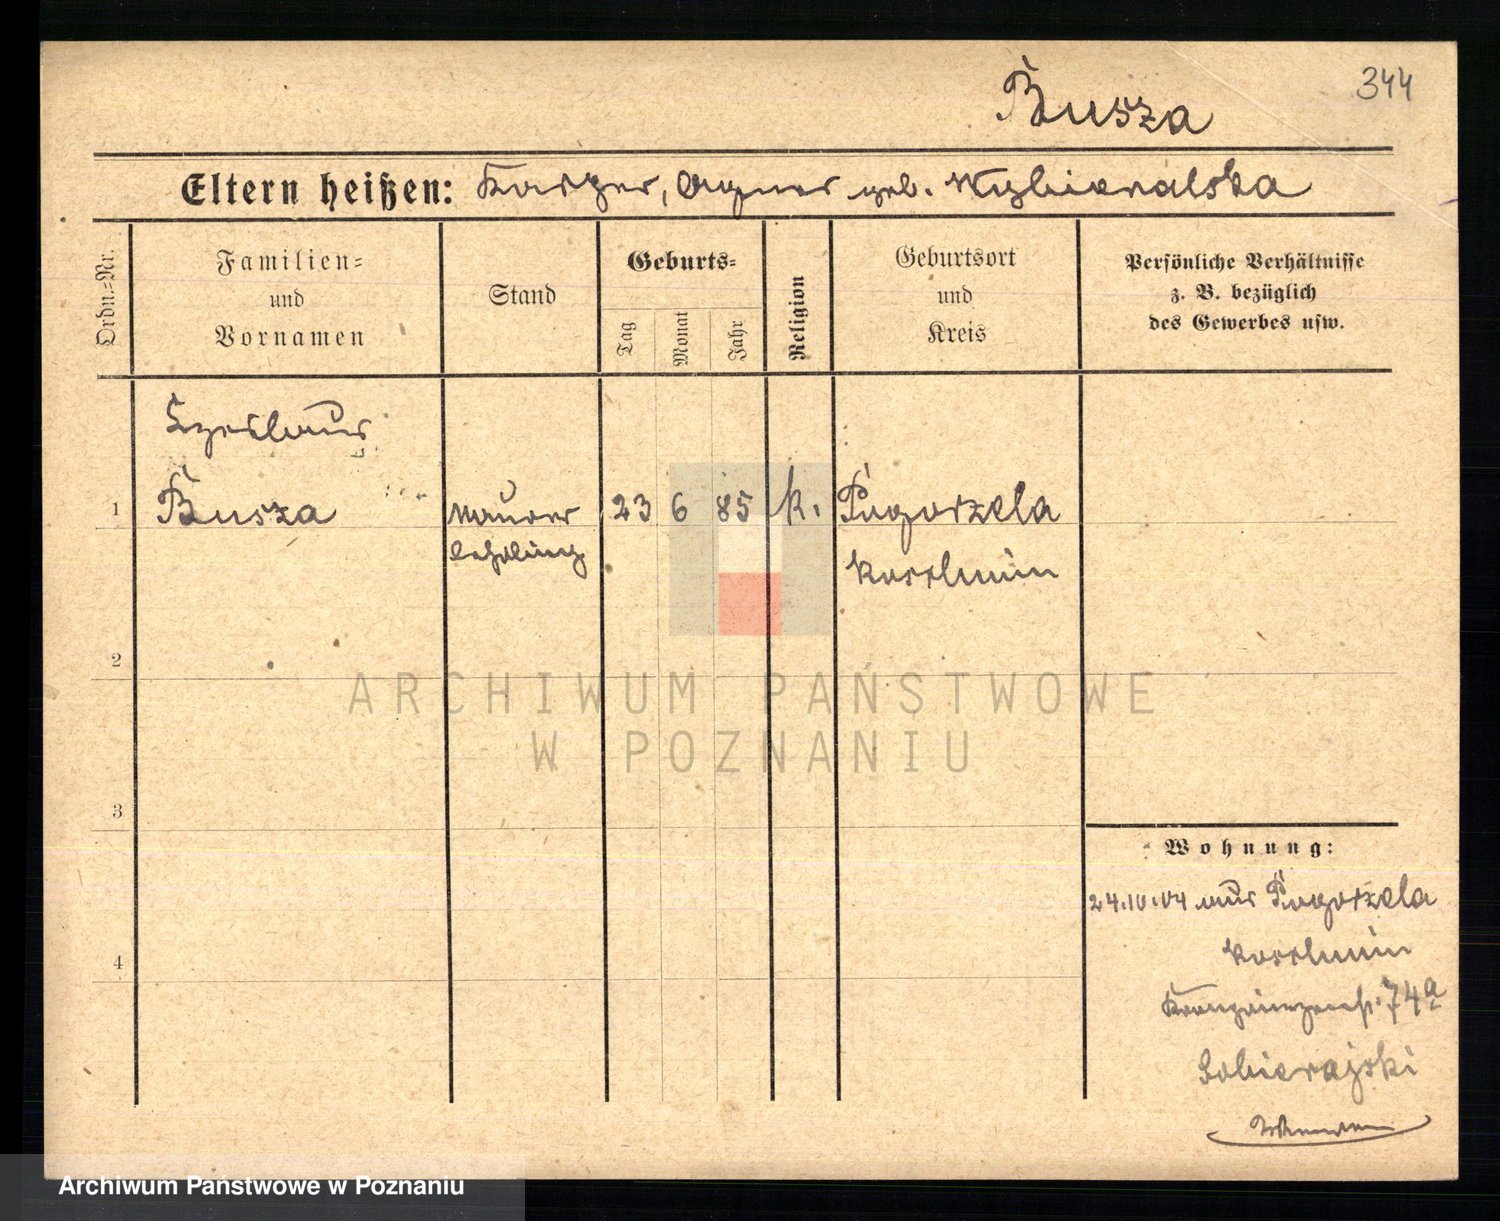 344
Busza
Eltern heißen: Kasper, Agnes geb. Wybieralska
Ordn.=Nr.
Familien=
und
Vornamen
Stand
Geburts=
Tag
Monat
Jahr
Religion
Geburtsort
und
Kreis
Persönliche Verhältnisse
z. B. bezüglich
des Gewerbes usw.
Czeslaus
1 Busza Maurer 23 6 85 k. Pogorzela
lehrling Koschmin
2
3
4
Wohnung:
24.10.04 aus Pogorzela
Koschmin
Kronprinzenstr. 74a
Sobierajski
ARCHIWUM PAŃSTWOWE
W POZNANIU
Archiwum Państwowe w Poznaniu